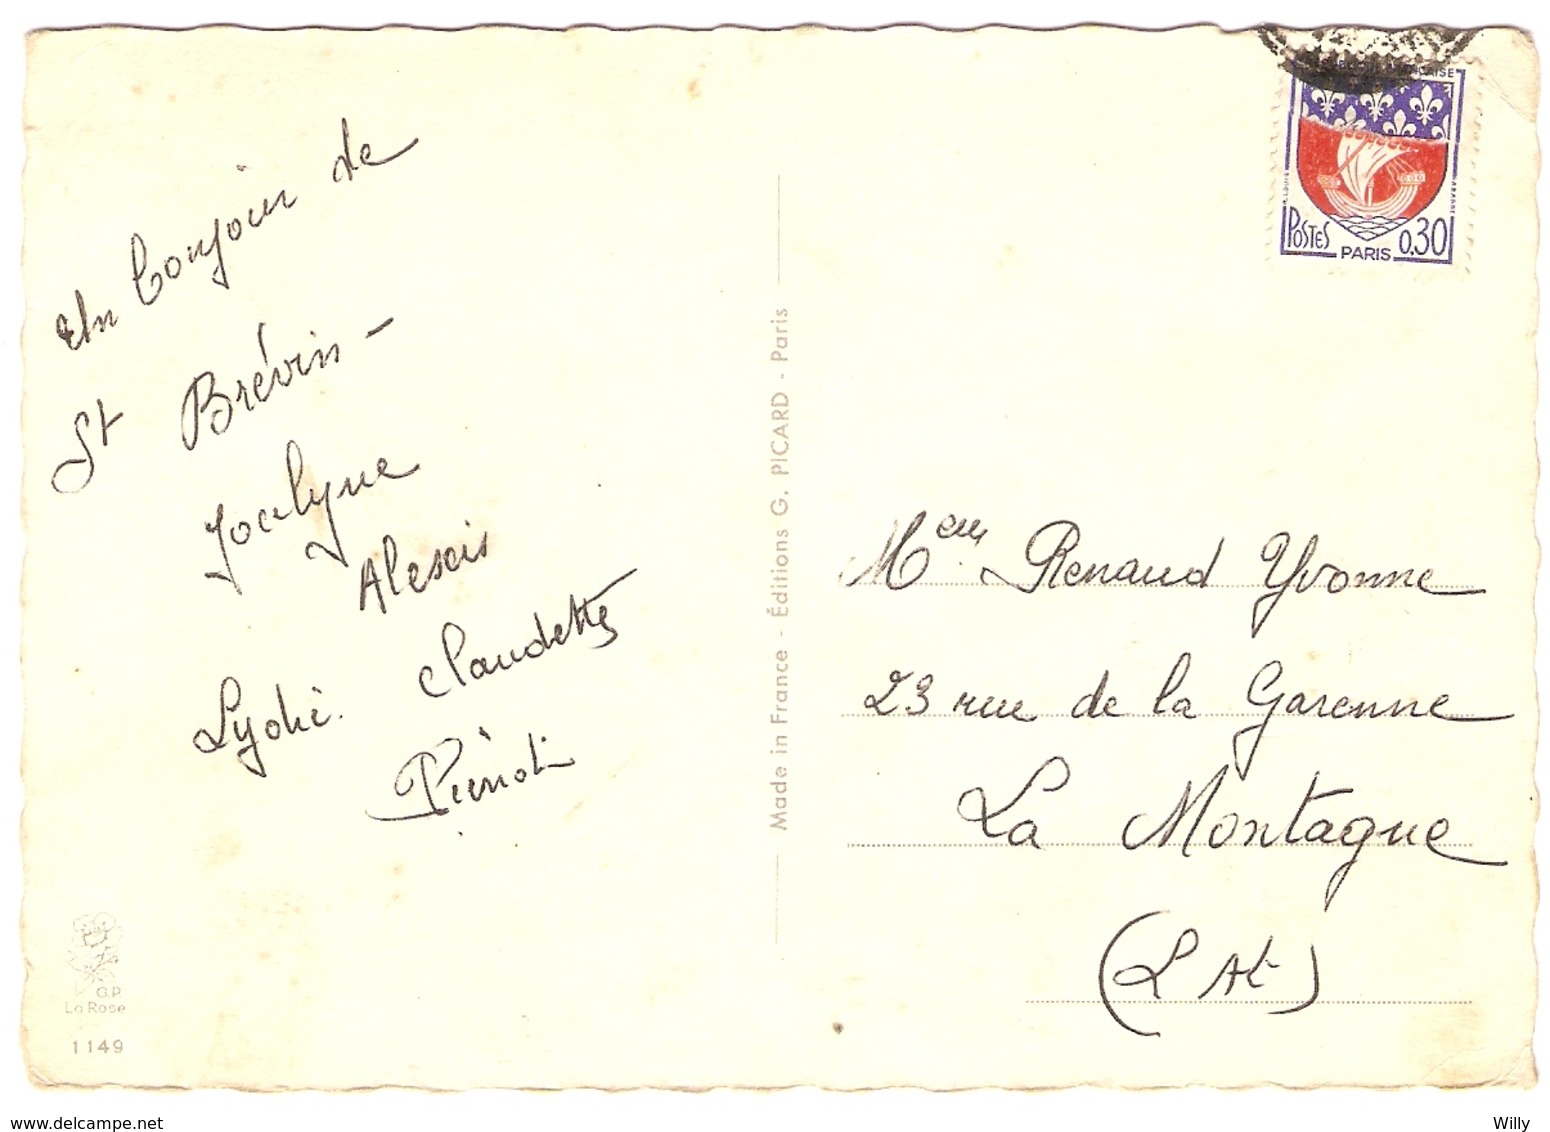 Un bonjour de
St Brévin -
Jocelyne
Alexis
Claudette
Lydie.
Pierrot
Made in France - Éditions G. PICARD - Paris
G.P.
La Rose
1149
POSTES PARIS 0,30
Mem Renaud Yvonne
23 rue de la Garenne
La Montagne
(L At)
www.delcampe.net
Willy